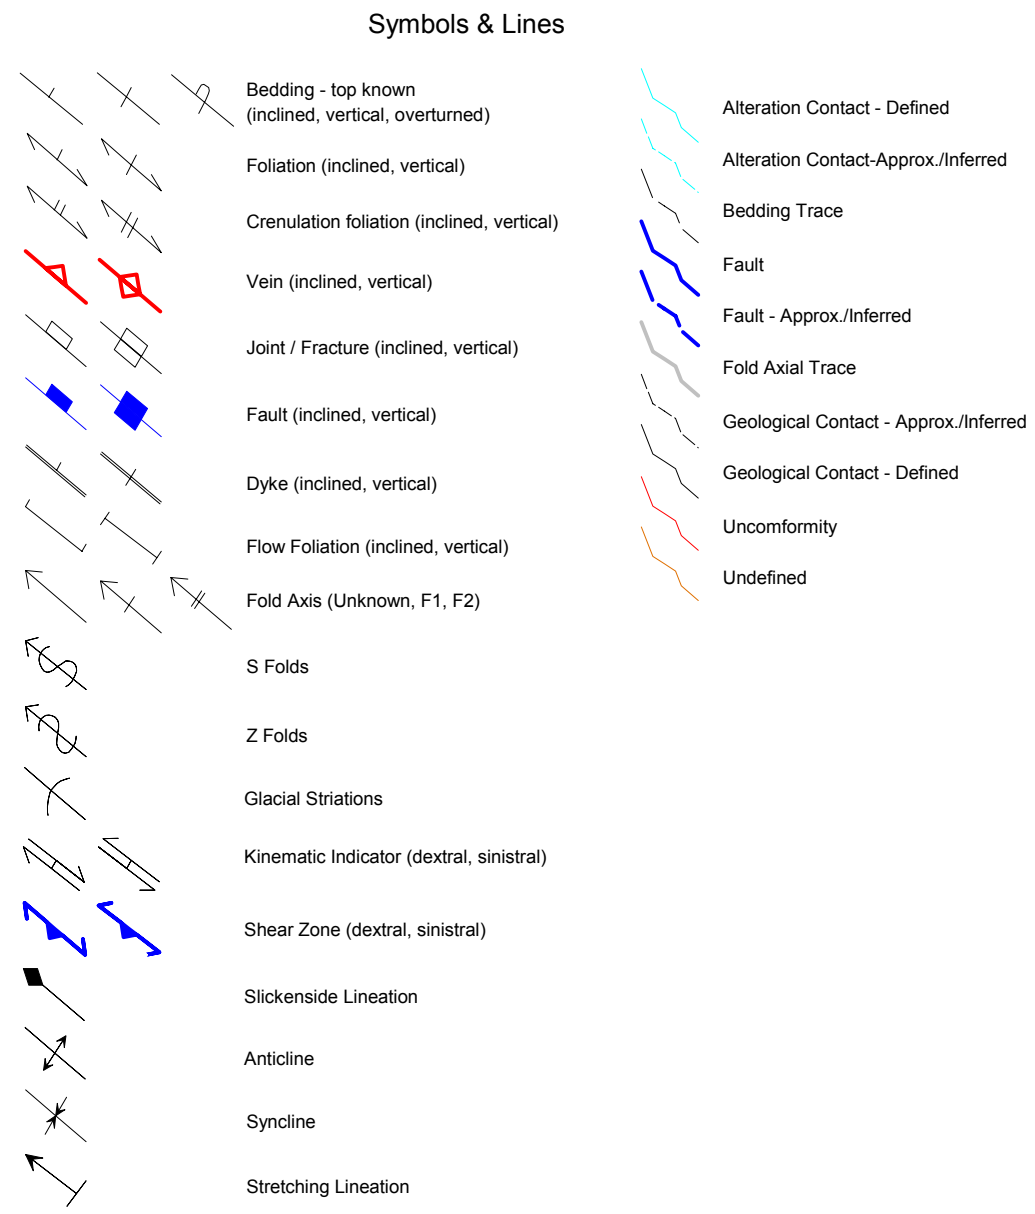 Symbols & Lines
Bedding - top known
(inclined, vertical, overturned)
Foliation (inclined, vertical)
Crenulation foliation (inclined, vertical)
Vein (inclined, vertical)
Joint / Fracture (inclined, vertical)
Fault (inclined, vertical)
Dyke (inclined, vertical)
Flow Foliation (inclined, vertical)
Fold Axis (Unknown, F1, F2)
S Folds
Z Folds
Glacial Striations
Kinematic Indicator (dextral, sinistral)
Shear Zone (dextral, sinistral)
Slickenside Lineation
Anticline
Syncline
Stretching Lineation
Alteration Contact - Defined
Alteration Contact-Approx./Inferred
Bedding Trace
Fault
Fault - Approx./Inferred
Fold Axial Trace
Geological Contact - Approx./Inferred
Geological Contact - Defined
Uncomformity
Undefined